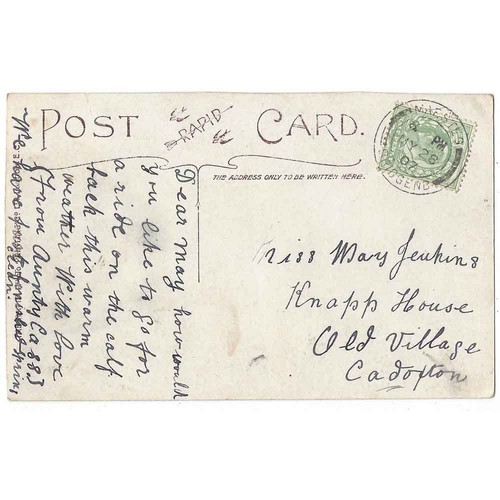 POST CARD.
RAPID
THE ADDRESS ONLY TO BE WRITTEN HERE.
Dear May how would
you like to go for
a ride on the calf
back this warm
weather With love
From Aunty Cass
We have
Miss Mary Jenkins
Knapp House
Old Village
Cadoxton